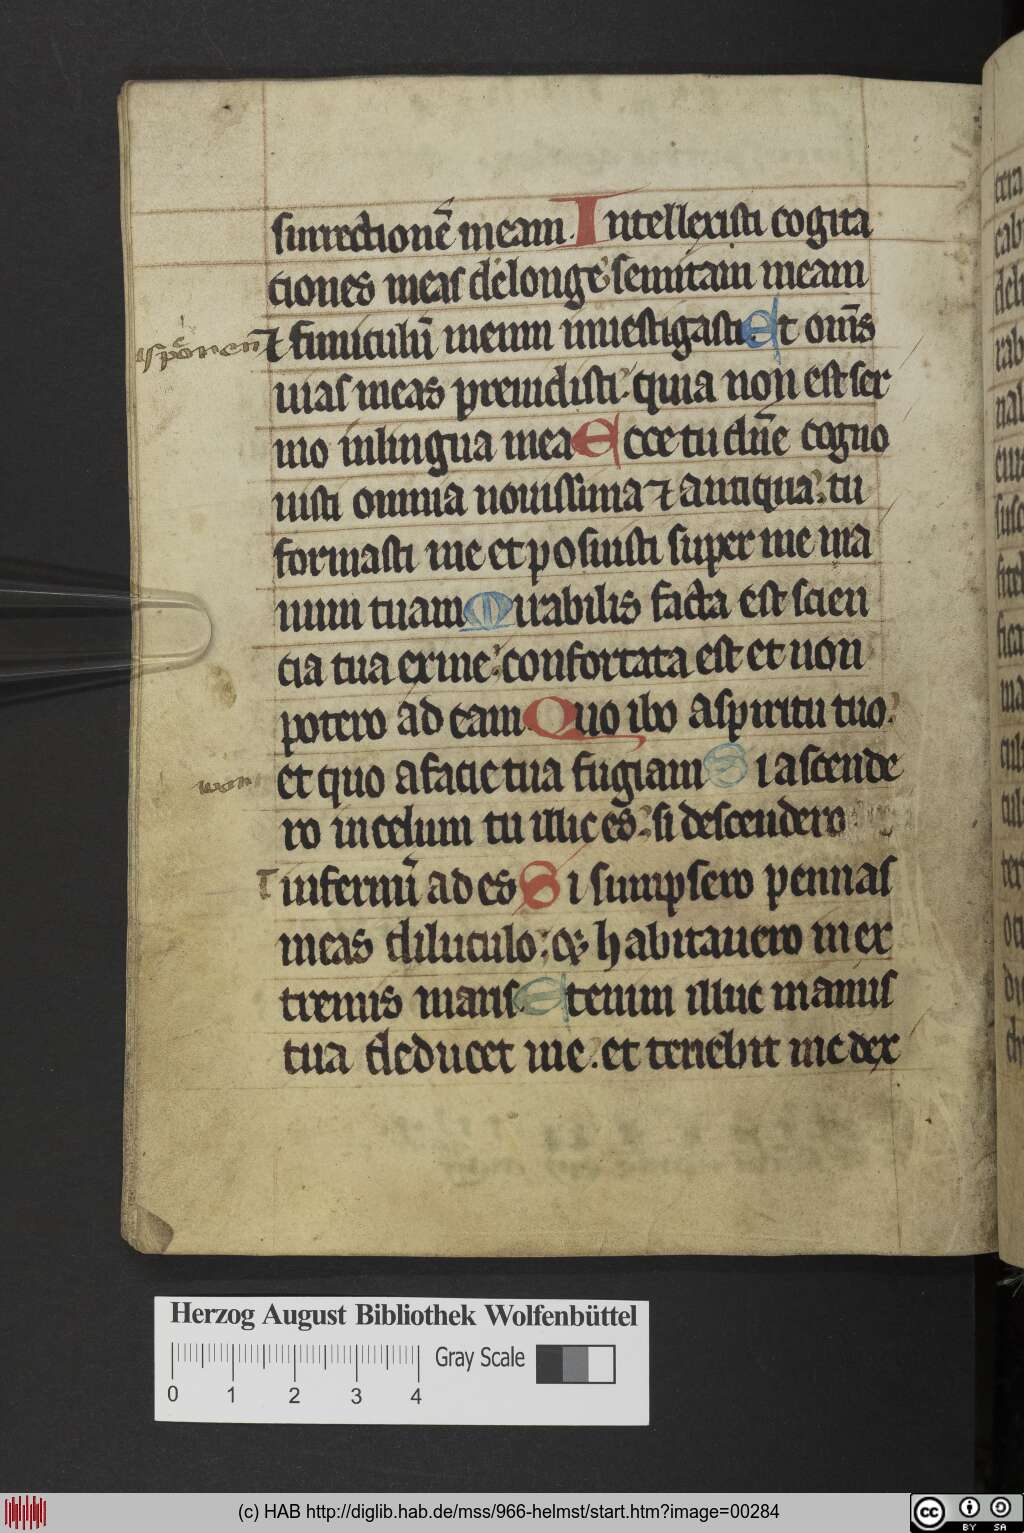 surrectionē meam. Intellexisti cogita
tiones meas delonge semitam meam
⁊ funiculū meum inuestigasti. Et om̄s
uias meas preuidisti. quia non est ser
mo inlingua mea Ecce tu dn̄e cogno
uisti omnia nouissima ⁊ antiqua. tu
formasti me et posuisti super me ma
num tuam Mirabilis facta est scien
cia tua exme. confortata est et non
potero ad eam Quo ibo aspiritu tuo.
non
et quo afacie tua fugiam Si ascende
ro incelum tu illic es. si descendero
ininfernū ades Si sumpsero pennas
meas diluculo. ⁊ habitauero in ex
tremis maris. Etenim illuc manus
tua deducet me. et tenebit me dex
Herzog August Bibliothek Wolfenbüttel
Gray Scale
0 1 2 3 4
(c) HAB http://diglib.hab.de/mss/966-helmst/start.htm?image=00284
cc BY SA